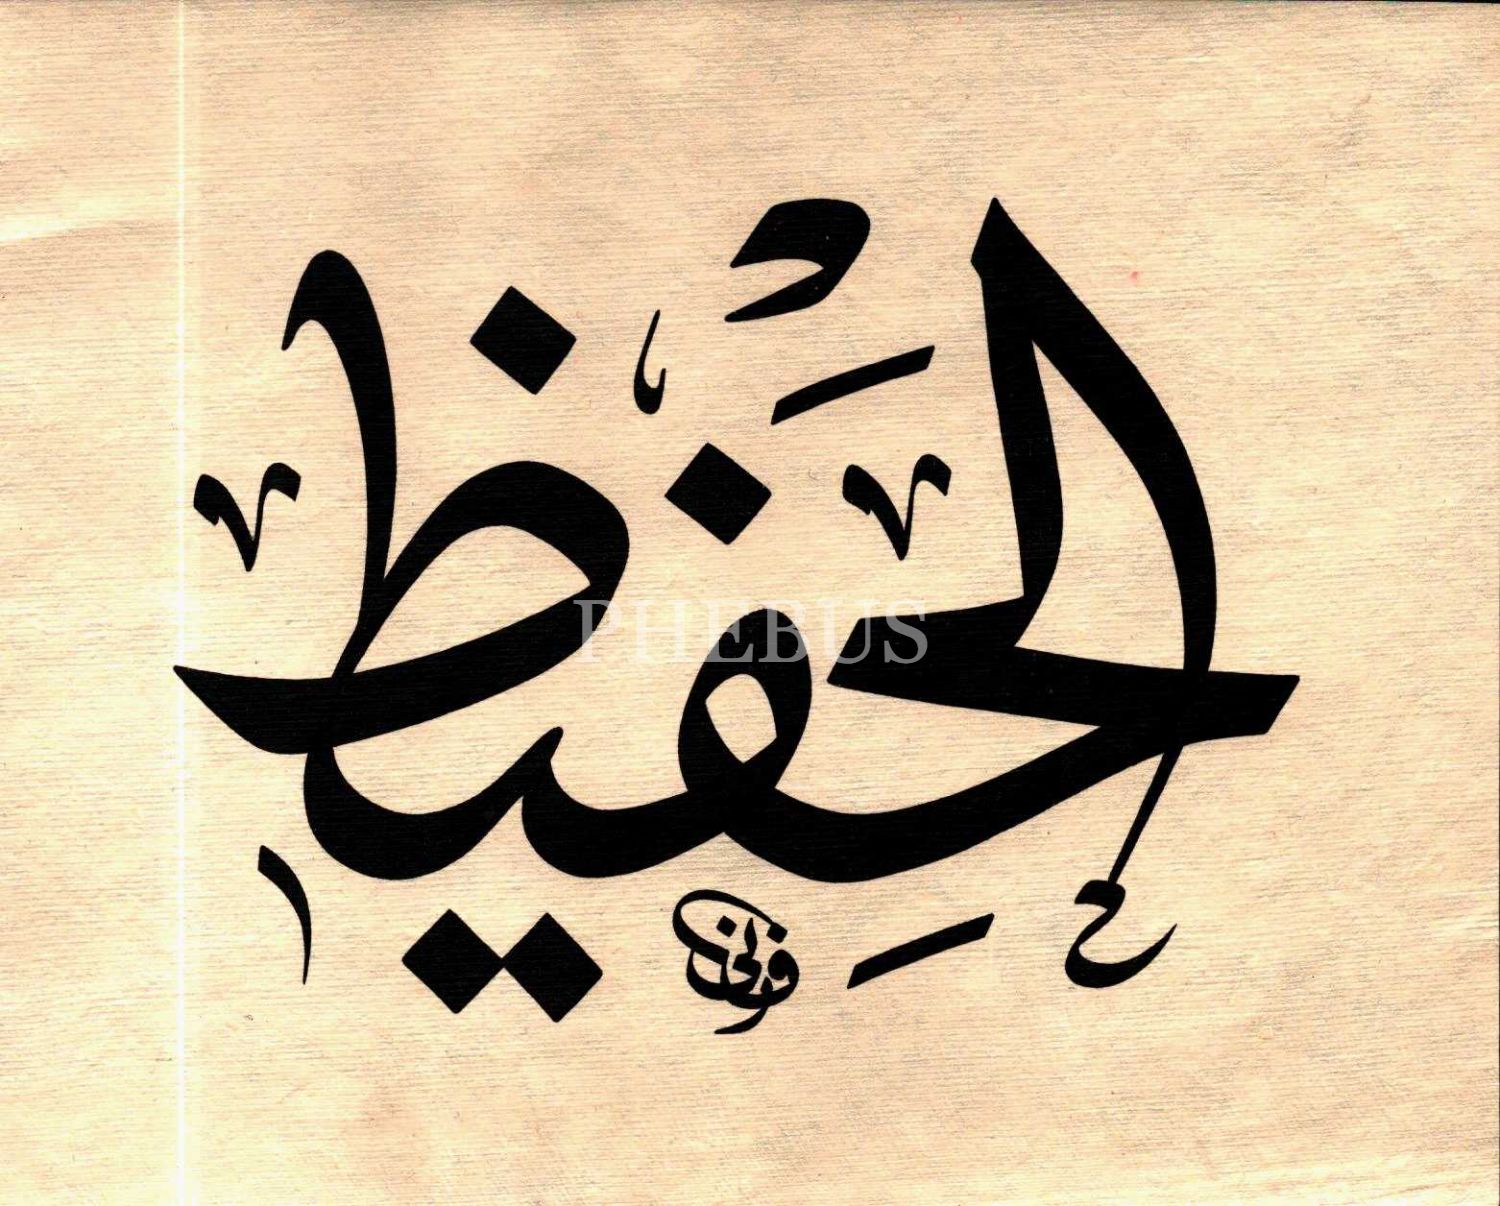 الحَفِيظُ
PHEBUS